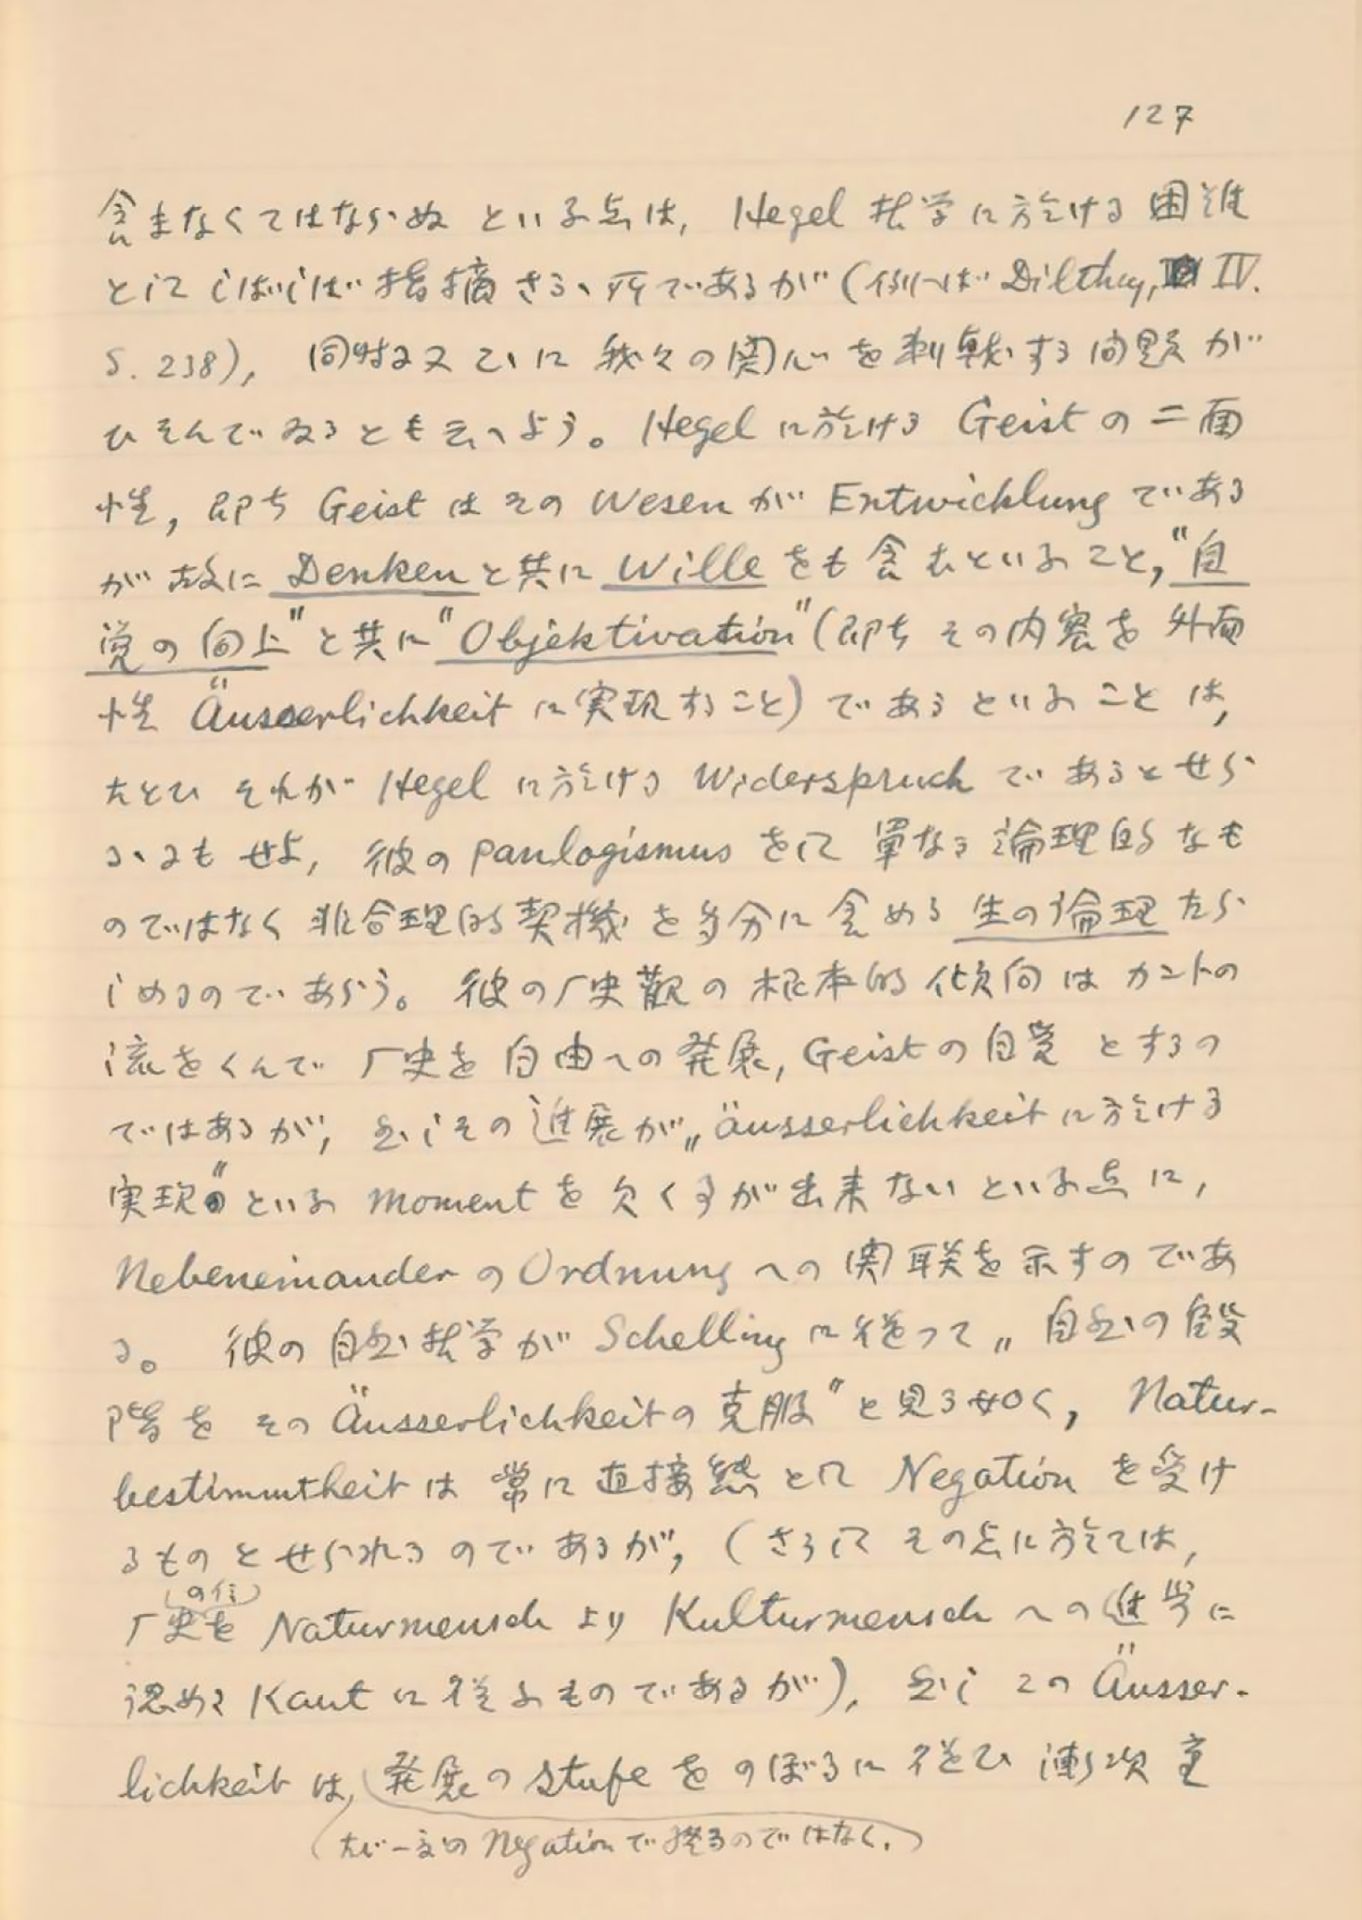 127
含まなくてはならぬ といふ点は, Hegel 哲学に於ける 困難
として しばしば 指摘さるゝ所であるが (例へば Dilthey, IV.
S. 238), 同時に又 こゝに 我々の関心を刺戟する問題が
ひそんでゐるとも云へよう。Hegel に於ける Geist の二面
性, 即ち Geist はその Wesen が Entwicklung である
が故に Denken と共に Wille をも含むといふこと, "自
覚の向上" と共に "Objektivation" (即ち その内容を 外面
性 Äusserlichkeit に実現すること) であるといふことは,
たとひ それが Hegel に於ける Widerspruch であるとせら
るゝにもせよ, 彼の Panlogismus をして 単なる 論理的なも
のではなく 非合理的契機を多分に含める 生の論理 たら
しめるのであらう。 彼の厂史観の根本的傾向は カントの
流をくんで 厂史を 自由への発展, Geist の自覚 とするの
ではあるが, 然しその進展が „äusserlichkeit に於ける
実現" といふ Moment を欠く事が出来ないといふ点に,
Nebeneinander の Ordnung への関联を示すのであ
る。 彼の自然哲学が Schelling に従って „自然の段
階を その Äusserlichkeit の克服" と見る如く, Natur-
bestimmtheit は 常に 直接態として Negation を受け
るものとせられるのであるが, (さうして その点に於ては,
厂史を Naturmensch より Kulturmensch への進歩に
認める Kant に従ふものであるが), 然し この Äusser-
lichkeit は, 発展の Stufe をのぼるに従ひ 漸次
(たゞ一度の Negation で終るのではなく,)